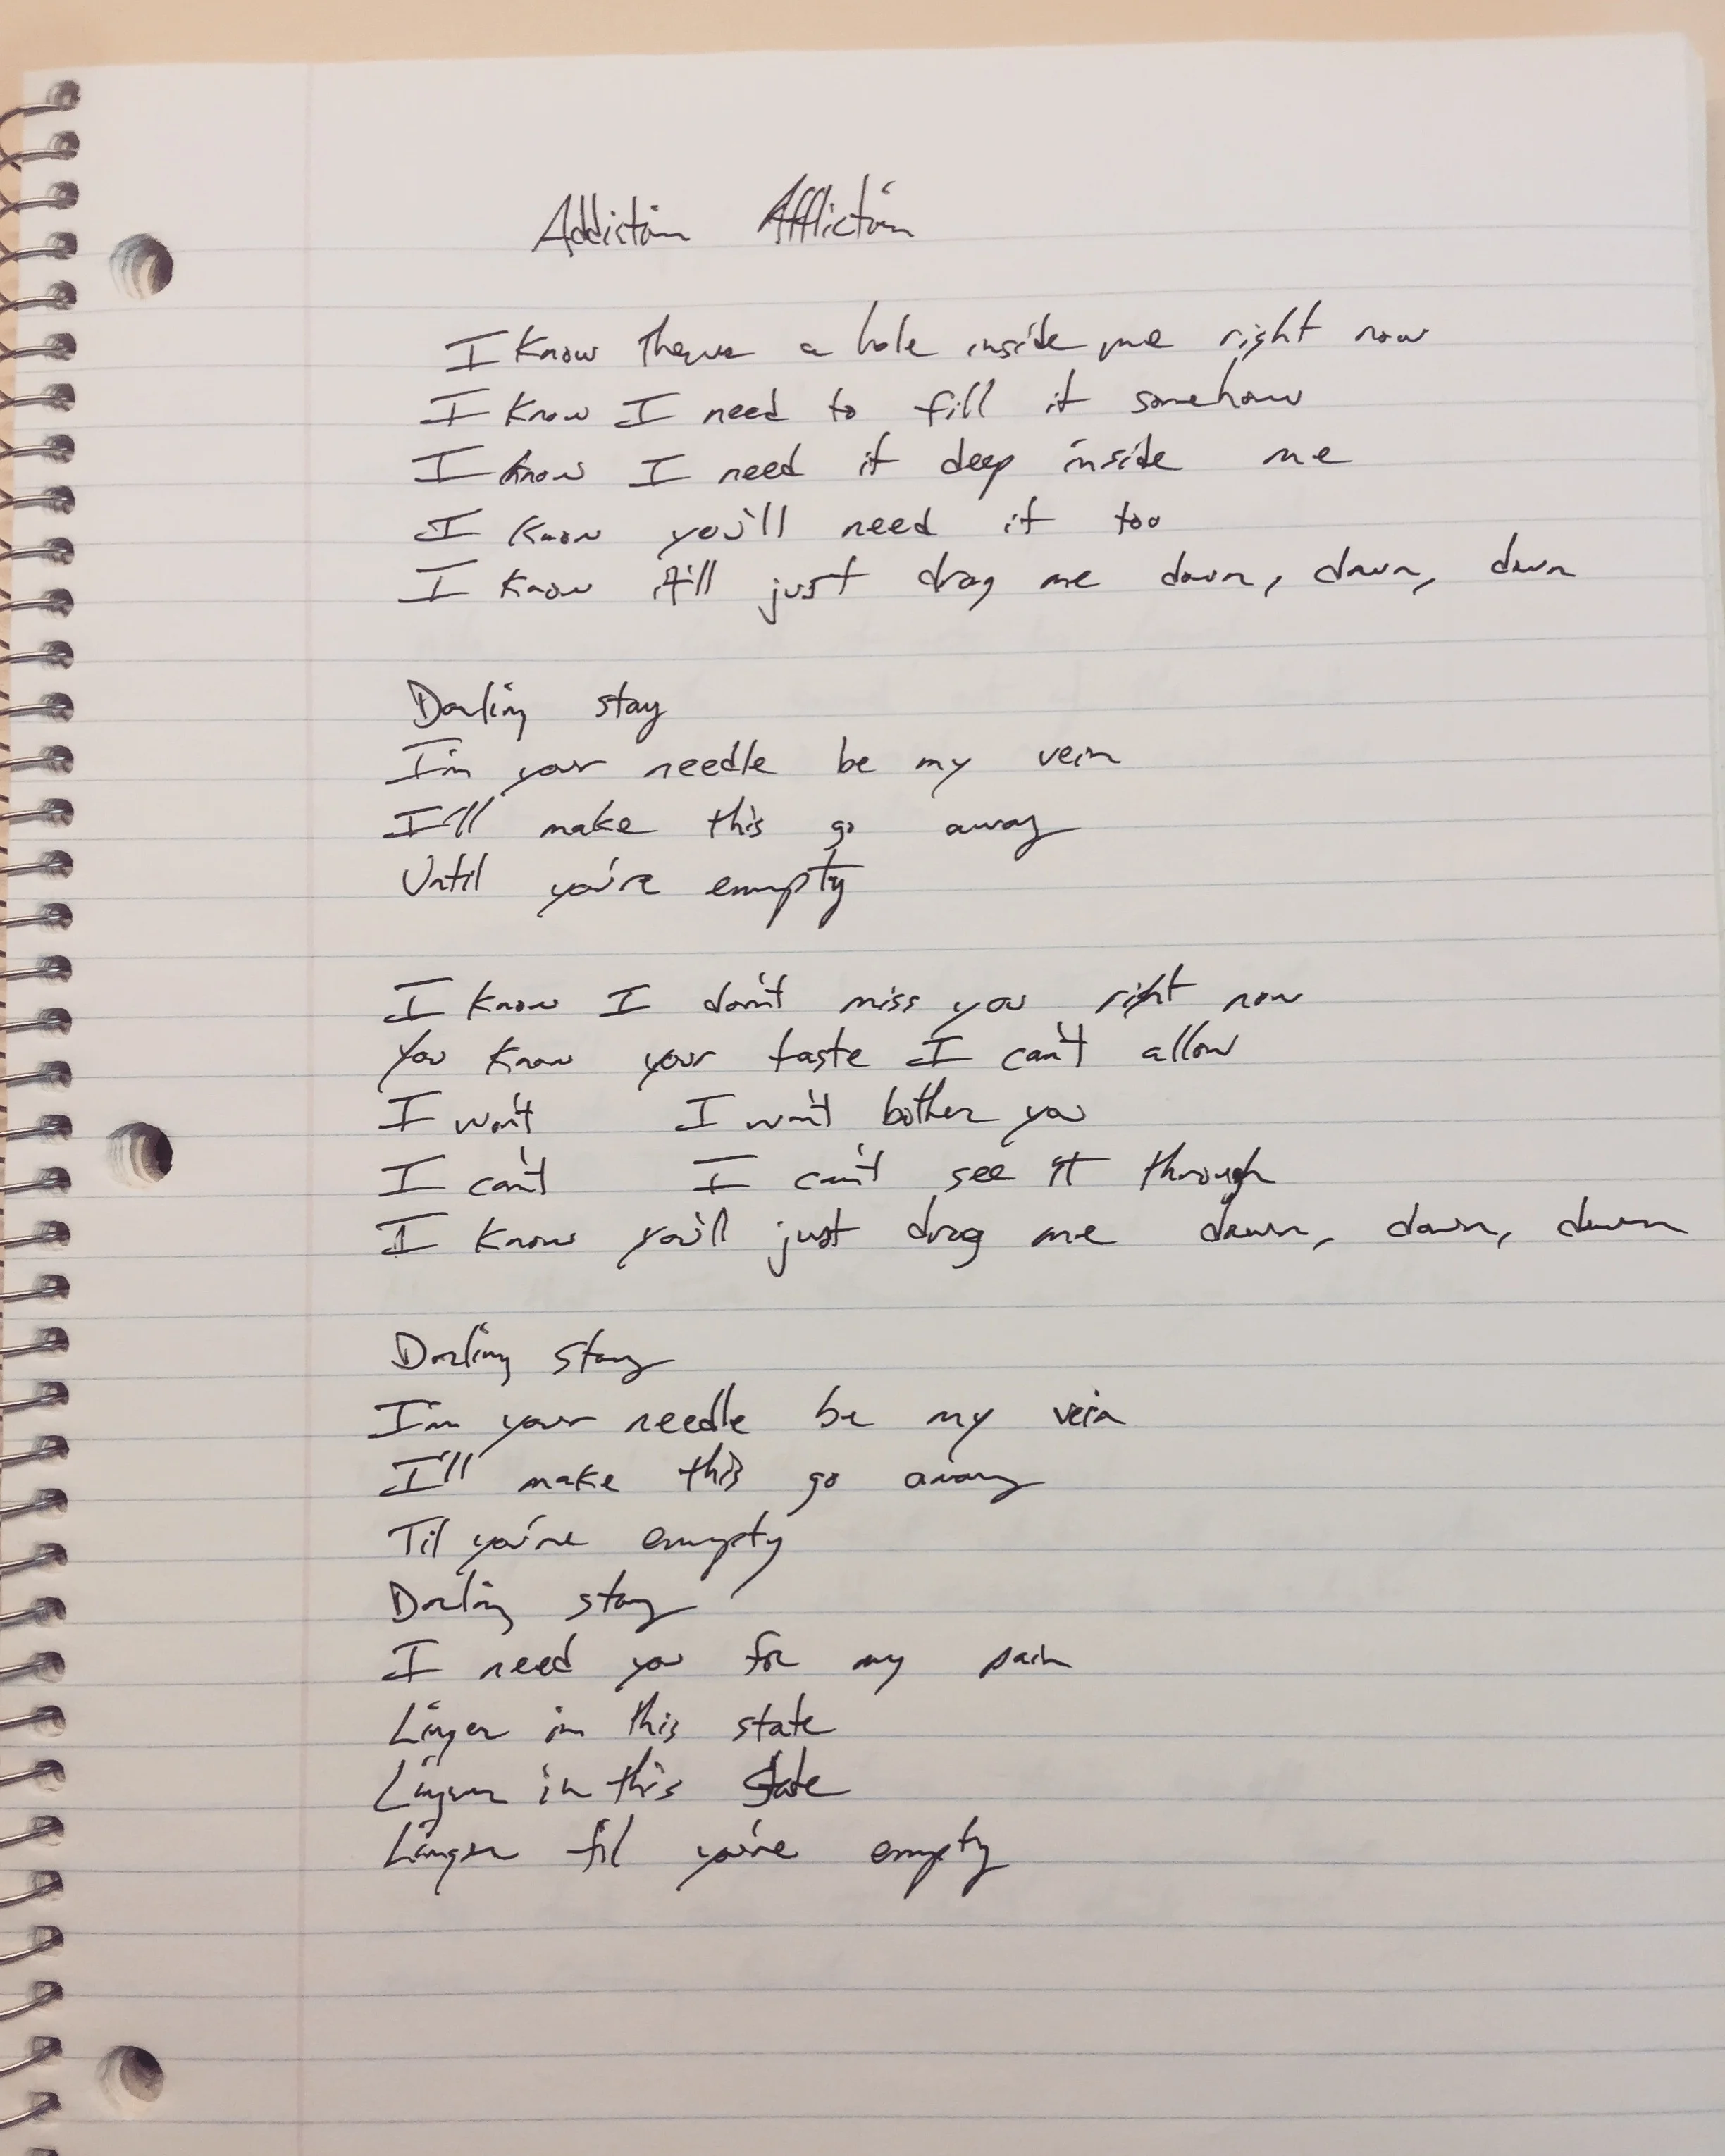 Addiction Affliction
I know theres a hole inside me right now
I know I need to fill it somehow
I know I need it deep inside me
I know you'll need it too
I know it'll just drag me down, down, down
Darling stay
I'm your needle be my vein
I'll make this go away
Until you're empty
I know I don't miss you right now
You know your taste I can't allow
I won't I won't bother you
I can't I can't see it through
I know you'll just drag me down, down, down
Darling stay
I'm your needle be my vein
I'll make this go away
Til you're empty
Darling stay
I need you for my pain
Linger in this state
Linger in this state
Linger til you're empty